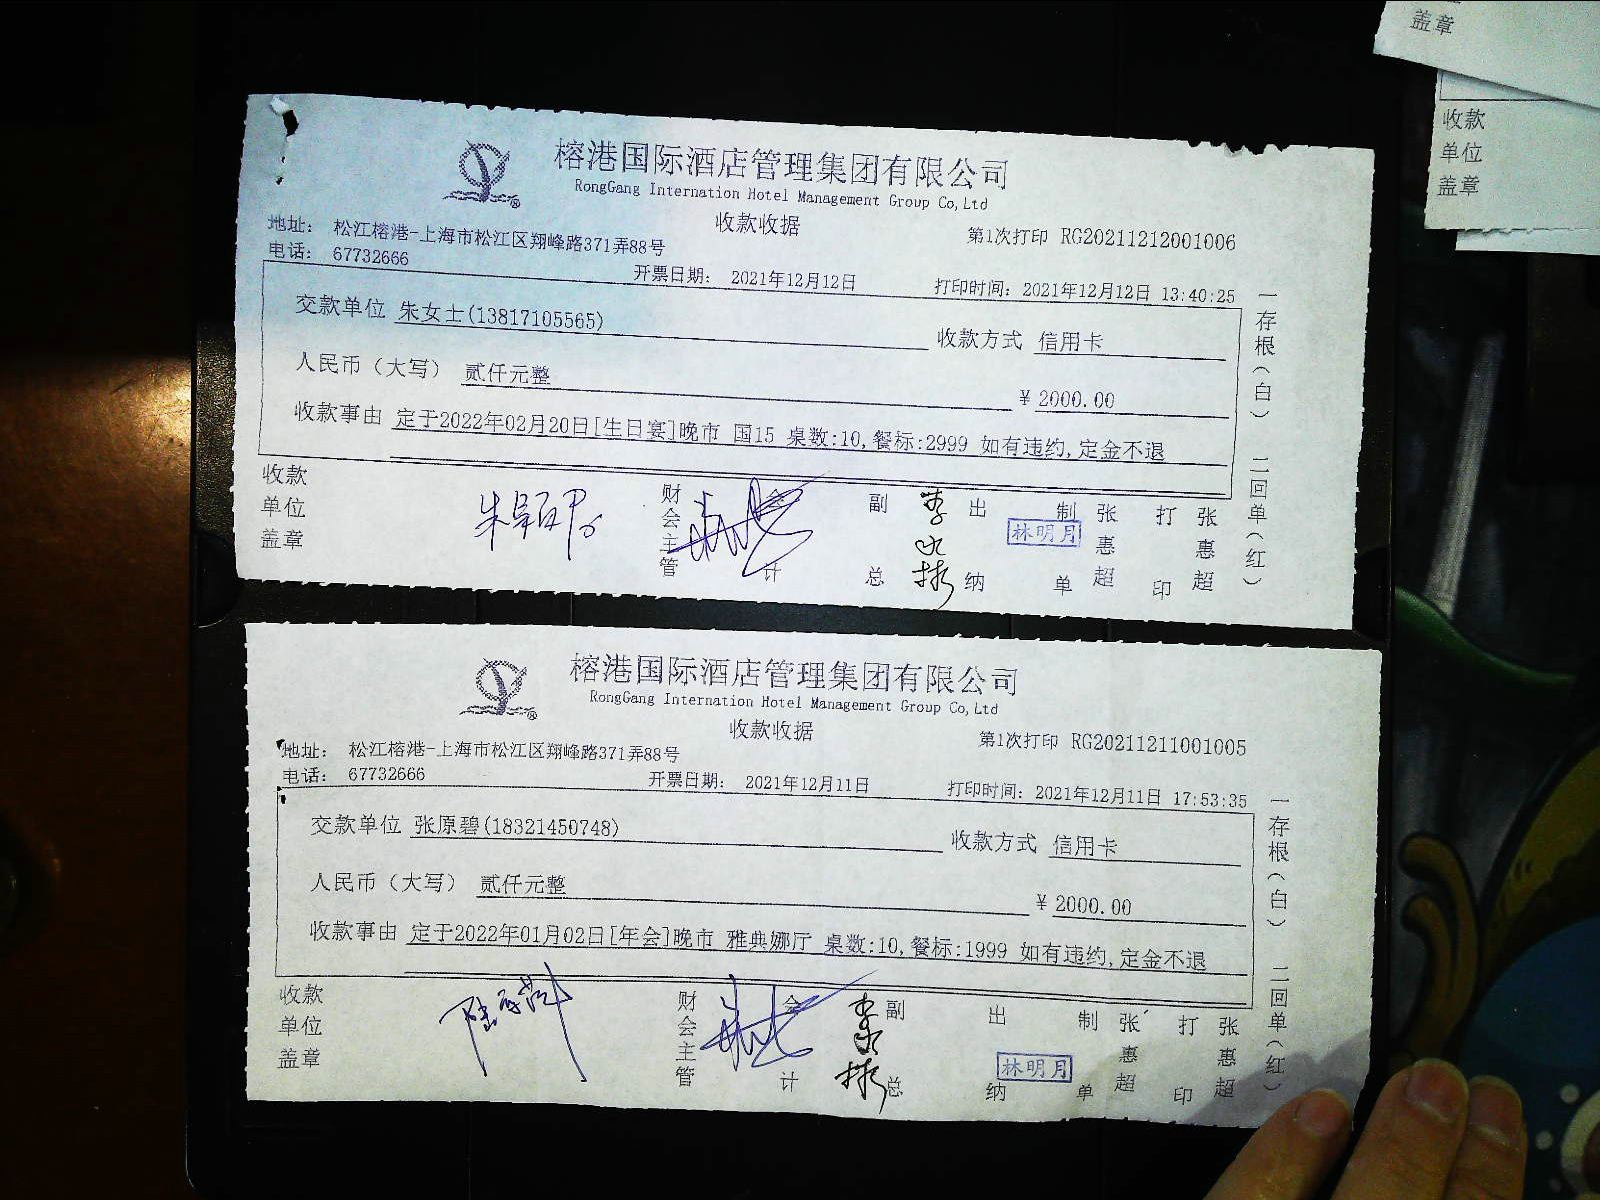 盖章
收款
单位
盖章
榕港国际酒店管理集团有限公司
RongGang Internation Hotel Management Group Co,Ltd
收款收据
地址： 松江榕港-上海市松江区翔峰路371弄88号
第1次打印 RG20211212001006
电话： 67732666
开票日期： 2021年12月12日
打印时间：2021年12月12日 13:40:25
交款单位 朱女士(13817105565)
收款方式 信用卡
人民币（大写） 贰仟元整
¥ 2000.00
收款事由 定于2022年02月20日[生日宴]晚市 国15 桌数:10,餐标:2999 如有违约,定金不退
一存根（白） 二回单（红）
收款单位盖章
财会主管
会计
副总 李
出纳 林明月
制单 张惠超
打印 张惠超
榕港国际酒店管理集团有限公司
RongGang Internation Hotel Management Group Co,Ltd
收款收据
地址： 松江榕港-上海市松江区翔峰路371弄88号
第1次打印 RG20211211001005
电话： 67732666
开票日期： 2021年12月11日
打印时间：2021年12月11日 17:53:35
交款单位 张原碧(18321450748)
收款方式 信用卡
人民币（大写） 贰仟元整
¥ 2000.00
收款事由 定于2022年01月02日[年会]晚市 雅典娜厅 桌数:10,餐标:1999 如有违约,定金不退
一存根（白） 二回单（红）
收款单位盖章
财会主管
会计
副总 李
出纳 林明月
制单 张惠超
打印 张惠超